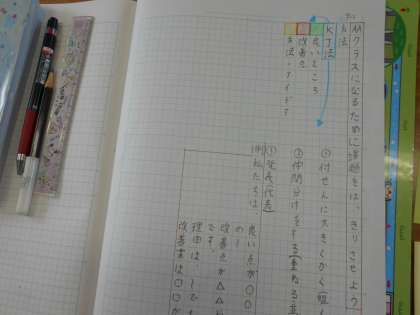 AAクラスになるために課題をは、きりさせよう
方法
KJ法
良いところ
改善点
方法・アイデア
①付せんに大きくかく
②仲間分けをする(重ねる
③発表(代表)
例 私たちは
良い点が〇〇
の
改善点が△△
です。
理由は、
改善案は〇〇が